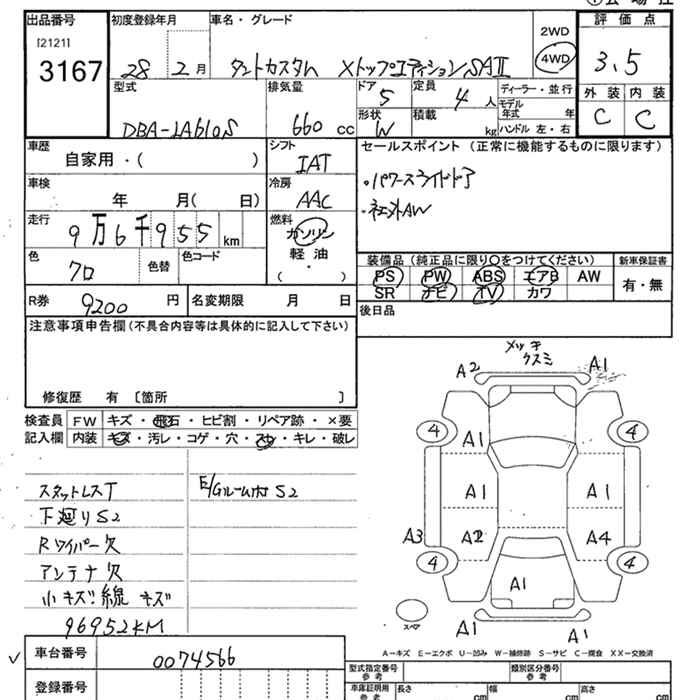 出品番号
[2121]
3167
初度登録年月
28 2月
車名・グレード
タントカスタム Xトップエディション SAⅡ
2WD
4WD
評価点
3.5
外装 内装
C C
型式
DBA-LA610S
排気量
660 cc
ドア
5
形状
W
定員
4 人
積載
kg
ディーラー・並行
モデル年式 年
ハンドル 左・右
車歴
自家用・( )
シフト
IAT
車検
年 月( 日)
冷房
AAC
走行
9万6千955 km
燃料
ガソリン
軽油
( ・ )
色
クロ
色替
色コード
セールスポイント (正常に機能するものに限ります)
・パワースライドドア
・社外AW
装備品 (純正品に限り○をつけてください)
PS PW ABS エアB AW
SR ナビ TV カワ
新車保証書
有・無
R券
9200 円
名変期限 月 日
後日品
注意事項申告欄(不具合内容等は具体的に記入して下さい)
修復歴 有 〔箇所 〕
検査員
記入欄
FW キズ・飛石・ヒビ割・リペア跡・×要
内装 キズ・汚レ・コゲ・穴・スレ・キレ・破レ
スタットレスT
下廻りS2
Rワイパー欠
アンテナ欠
小キズ線キズ
96952KM
E/Gルーム内 S2
メッキ
クスミ
A2 A1
4 4
A1
A1 A1
A3 A2 A4
4 4
A1
スペア
A1 A1
A-キズ E-エクボ U-凹み W-補修跡 S-サビ C-腐食 XX-交換済
車台番号
0074566
登録番号
型式指定番号
参考
類別区分番号
参考
車庫証明用
参考
長さ cm
幅 cm
高さ cm